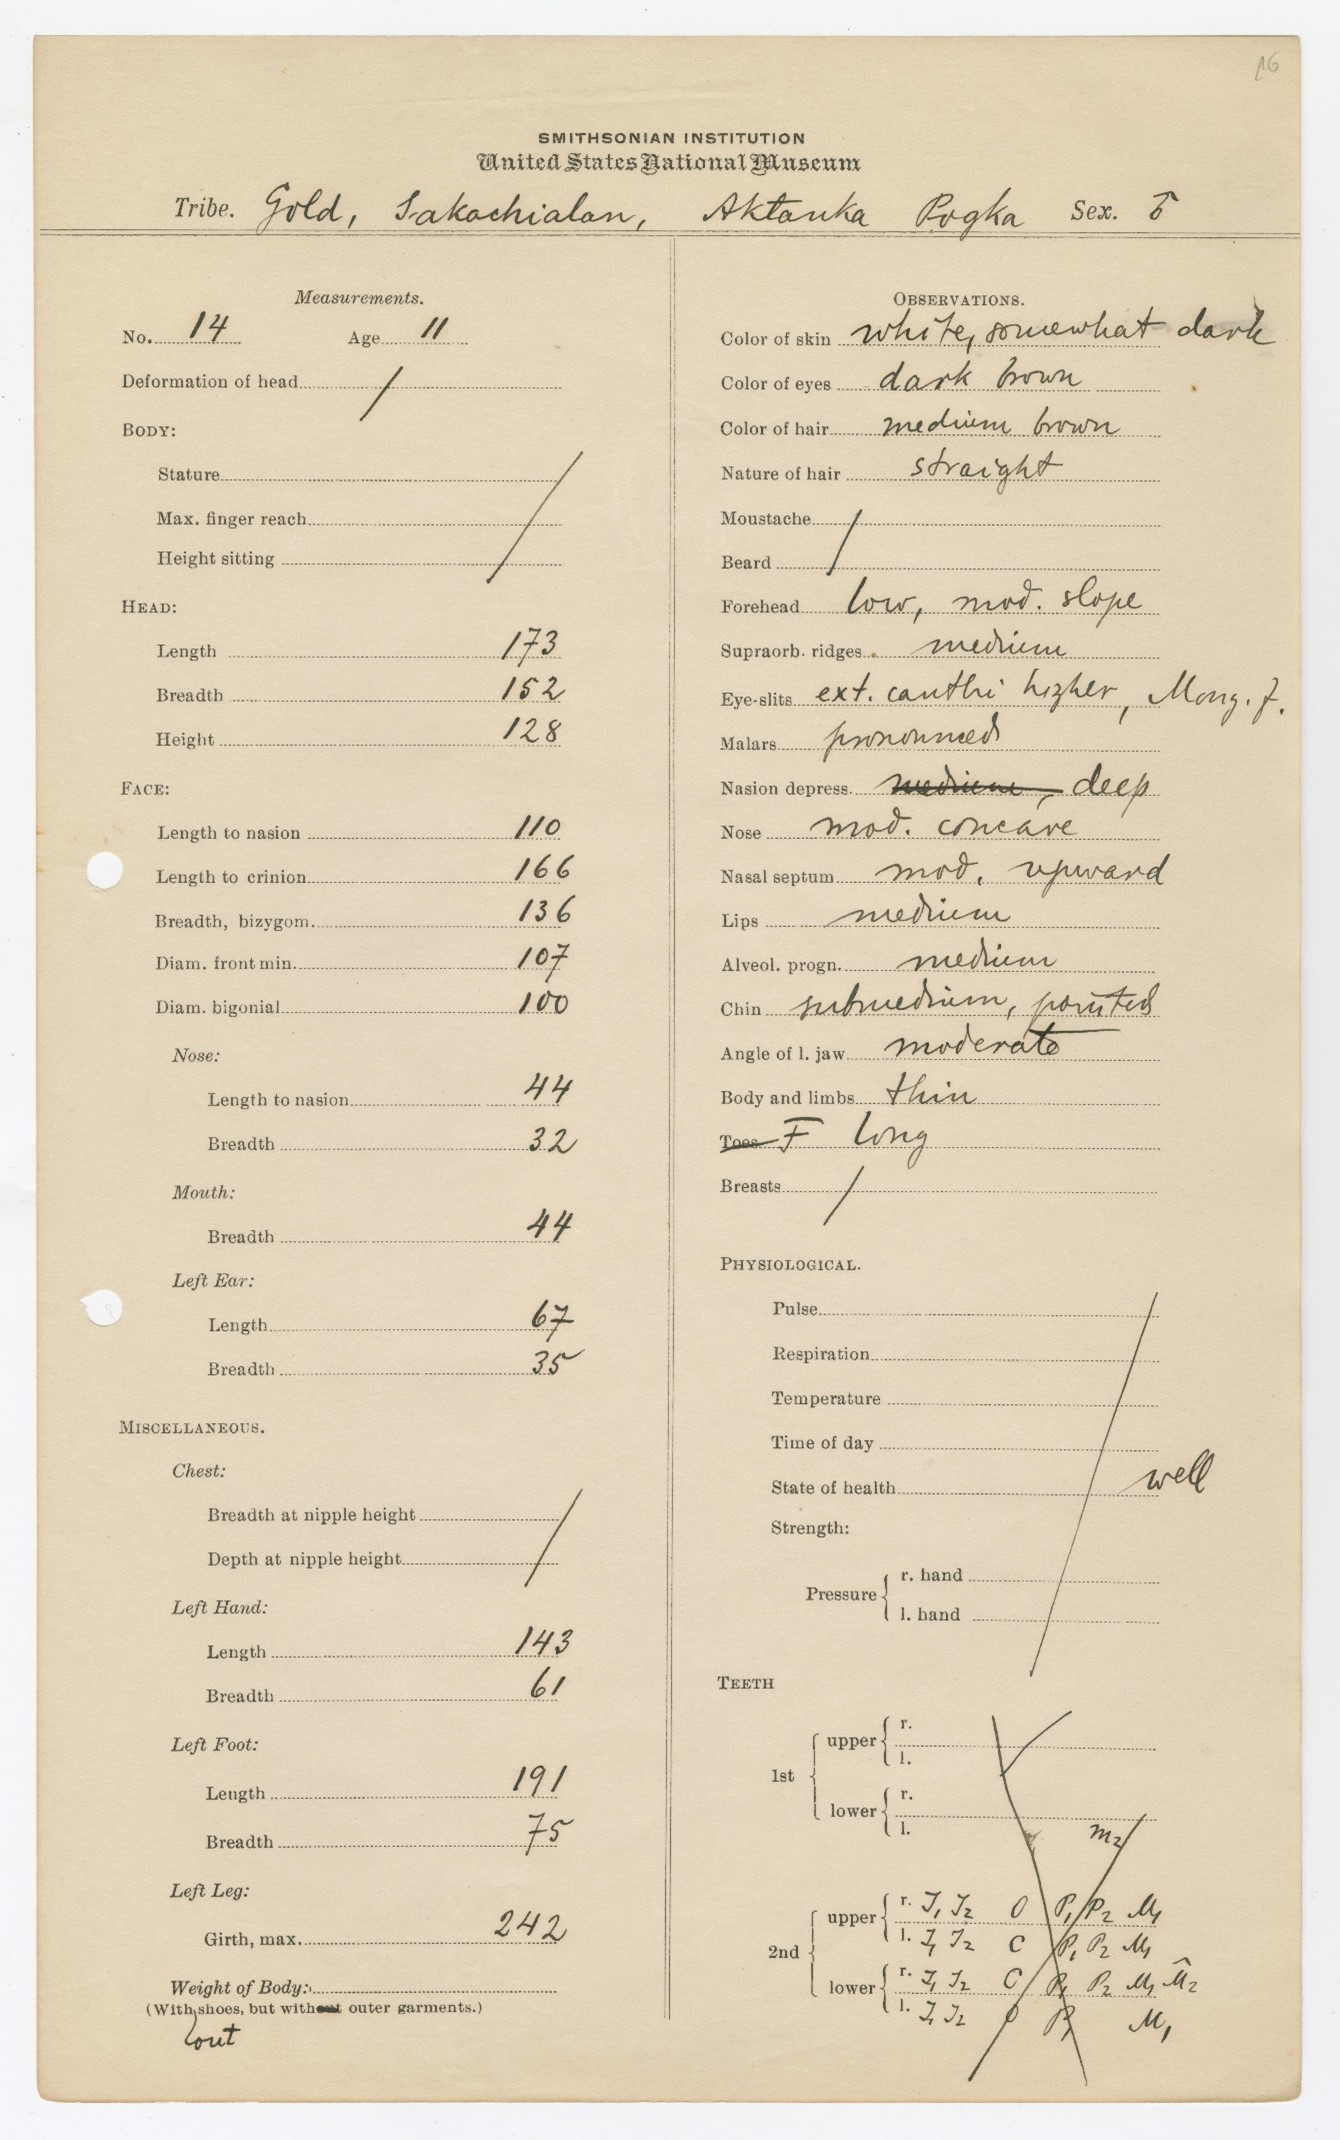 16
SMITHSONIAN INSTITUTION
United States National Museum
Tribe. Gold, Sakachialan, Aktanka Pogka Sex. 5
Measurements.
No. 14 Age 11
Deformation of head /
BODY:
Stature
Max. finger reach
Height sitting
HEAD:
Length 173
Breadth 152
Height 128
FACE:
Length to nasion 110
Length to crinion 166
Breadth, bizygom. 136
Diam. front min. 107
Diam. bigonial 100
Nose:
Length to nasion 44
Breadth 32
Mouth:
Breadth 44
Left Ear:
Length 67
Breadth 35
MISCELLANEOUS.
Chest:
Breadth at nipple height
Depth at nipple height
Left Hand:
Length 143
Breadth 61
Left Foot:
Length 191
Breadth 75
Left Leg:
Girth, max. 242
Weight of Body:
(With shoes, but without outer garments.)
out
OBSERVATIONS.
Color of skin white, somewhat dark
Color of eyes dark brown
Color of hair medium brown
Nature of hair straight
Moustache
Beard
Forehead low, mod. slope
Supraorb. ridges medium
Eye-slits ext. canthi higher, Mong. f.
Malars pronounced
Nasion depress. medium, deep
Nose mod. concave
Nasal septum mod. upward
Lips medium
Alveol. progn. medium
Chin submedium, pointed
Angle of l. jaw moderate
Body and limbs thin
Toes F long
Breasts /
PHYSIOLOGICAL.
Pulse
Respiration
Temperature
Time of day
State of health well
Strength:
Pressure r. hand
l. hand
TEETH
1st upper r.
l.
lower r.
l.
m2
2nd upper r. I1 I2 O P1 P2 M1
l. I1 I2 C P1 P2 M1
lower r. I1 I2 C P1 P2 M1 M2
l. I1 I2 O P1 M1